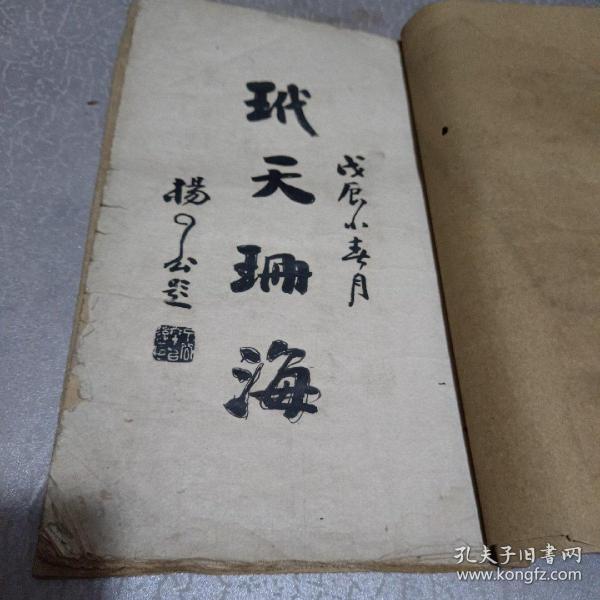 戊辰小春月
玳天珊海
楊了公題
孔夫子旧書网
www.kongfz.com